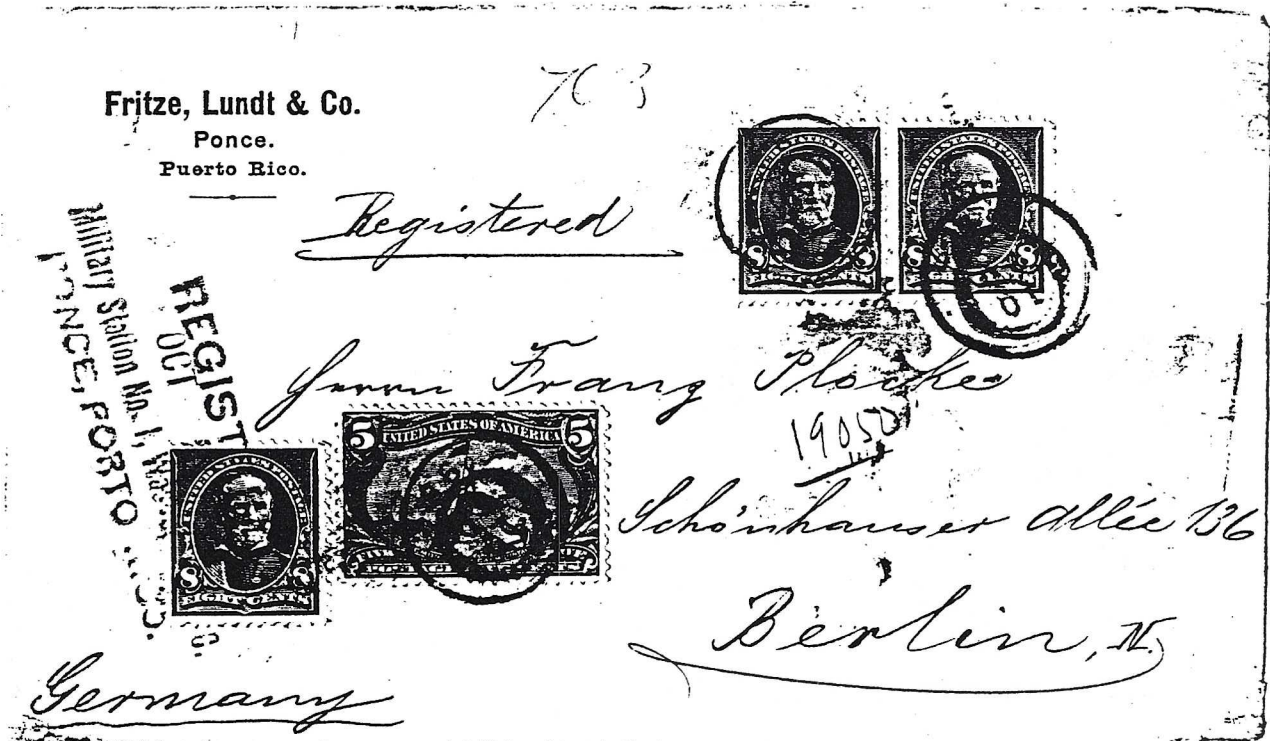 Fritze, Lundt & Co.
Ponce.
Puerto Rico.
Registered
Military Station No. 1,
PONCE, PORTO
REGIST
OCT
UNITED STATES POSTAGE
8 8
EIGHT CENTS
UNITED STATES POSTAGE
8 8
EIGHT CENTS
Herrn Franz Plocke
19050
5 UNITED STATES OF AMERICA 5
UNITED STATES POSTAGE
8 8
EIGHT CENTS
Schönhauser Allée 136
Berlin, N.
Germany